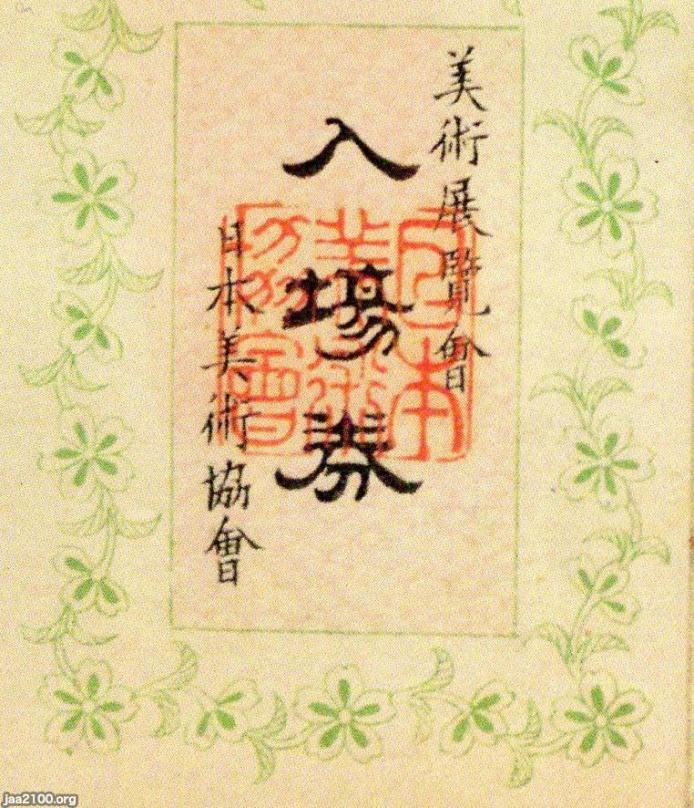 美術展覽會
入場券
日本美術協會
日本
美術
協會
jaa2100.org